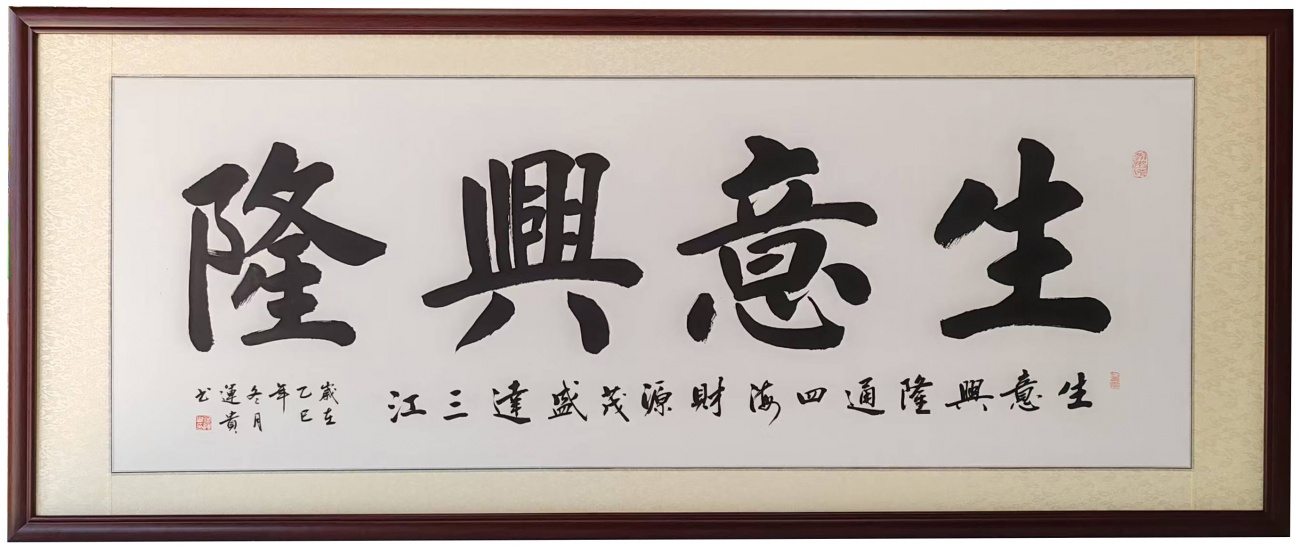 生意興隆
生意興隆通四海財源茂盛達三江
歲在
乙巳
年
冬月
運貴
书